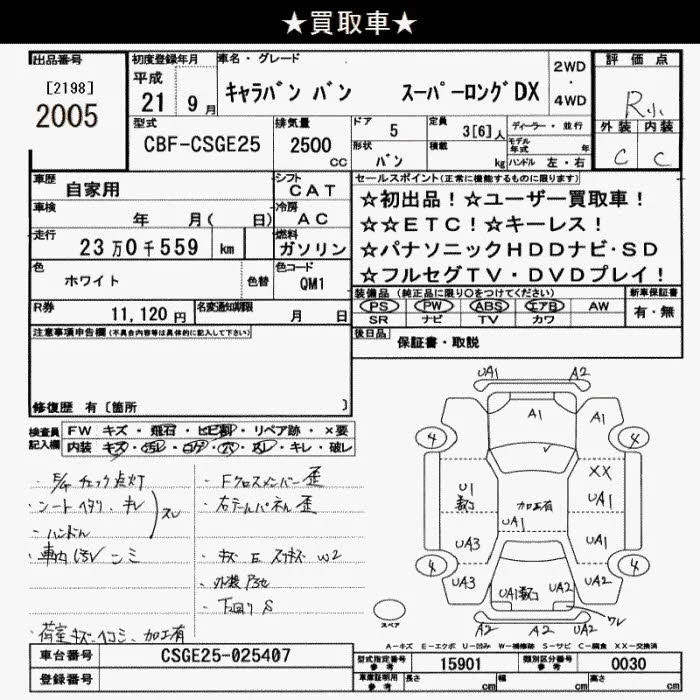 ★買取車★
出品番号
[2198]
2005
初度登録年月
平成
21 9月
車名・グレード
キャラバン バン スーパーロングDX
2WD
・
4WD
評価点
R小
外装 内装
C C
型式
CBF-CSGE25
排気量
2500
CC
ドア 5
形状 バン
定員 3[6]人
積載 kg
ディーラー・並行
モデル年式 年
ハンドル 左・右
車歴 自家用
シフト CAT
車検 年 月( 日)
冷房 AC
走行 23万0千559 km
燃料 ガソリン
色 ホワイト 色替
色コード QM1
R券 11,120円
名変通知期限 月 日
セールスポイント(正常に機能するものに限ります)
☆初出品!☆ユーザー買取車!
☆☆ETC!☆キーレス!
☆パナソニックHDDナビ・SD
☆フルセグTV・DVDプレイ!
装備品 (純正品に限り○をつけてください)
PS PW ABS エアB AW
SR ナビ TV カワ
新車保証書
有・無
後日品
保証書・取説
注意事項申告欄(不具合内容等は具体的に記入して下さい)
修復歴 有〔箇所 〕
検査員記入欄
FW キズ・飛石・ヒビ割・リペア跡・×要
内装 キズ・汚レ・コゲ・穴・スレ・キレ・破レ
・E/gチェック点灯
・シートヘタリ、キレ
・ハンドル
スレ
・車内汚レシミ
・荷室キズ・ヘコミ、加工有
・Fクロスメンバー歪
・右テールパネル歪
・下回りS
UA1 A2
A1 A1
4 4
XX
U1 UA1
加工有
UA1
UA3 UA1
4 4
UA3 UA2
UA1 UA2
ワレ
A2 A2 UA2
スペア
A-キズ E-エクボ U-凹み W-補修跡 S-サビ C-腐食 XX-交換済
車台番号 CSGE25-025407
登録番号
型式指定番号 参考 15901
類別区分番号 参考 0030
車庫証明用 参考
長さ cm
幅 cm
高さ cm